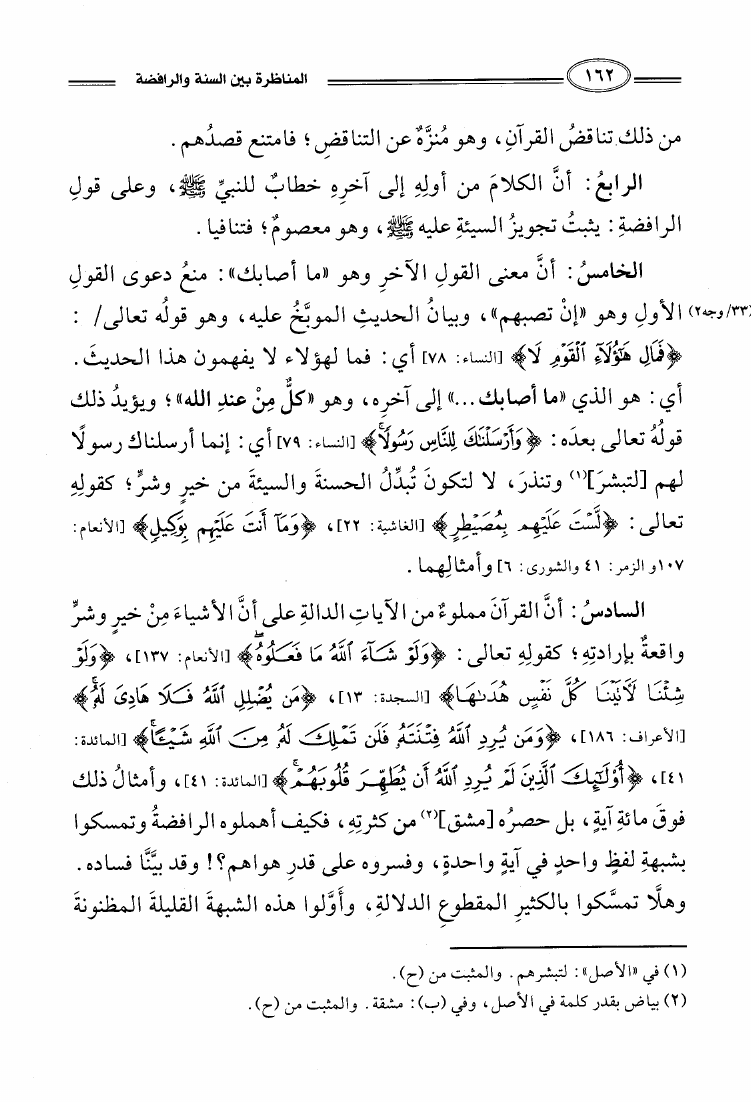 ١٦٢ المناظرة بين السنة والرافضة
من ذلك تناقضُ القرآنِ، وهو مُنزَّهٌ عن التناقضِ؛ فامتنع قصدُهم.
الرابعُ: أنَّ الكلامَ من أولِهِ إلى آخرِهِ خطابٌ للنبيِّ ﷺ، وعلى قولِ
الرافضةِ: يثبتُ تجويزُ السيئةِ عليه ﷺ، وهو معصومٌ؛ فتنافيا.
الخامسُ: أنَّ معنى القولِ الآخرِ وهو «ما أصابك»: منعُ دعوى القولِ
الأولِ وهو «إنْ تصبهم»، وبيانُ الحديثِ الموبَّخُ عليه، وهو قولُه تعالى/ : (٣٣/وجه٢)
﴿فَمَالِ هَٰٓؤُلَآءِ ٱلْقَوْمِ لَا﴾ [النساء: ٧٨] أي: فما لهؤلاء لا يفهمون هذا الحديثَ.
أي: هو الذي «ما أصابك...» إلى آخرِه، وهو «كلٌّ مِنْ عندِ الله»؛ ويؤيدُ ذلك
قولُهُ تعالى بعدَه: ﴿وَأَرْسَلْنَٰكَ لِلنَّاسِ رَسُولًا﴾ [النساء: ٧٩] أي: إنما أرسلناك رسولًا
لهم [لتبشرَ](١) وتنذرَ، لا لتكونَ تُبدِّلُ الحسنةَ والسيئةَ من خيرٍ وشرٍّ؛ كقولِهِ
تعالى: ﴿لَّسْتَ عَلَيْهِم بِمُصَيْطِرٍ﴾ [الغاشية: ٢٢]، ﴿وَمَآ أَنتَ عَلَيْهِم بِوَكِيلٍ﴾ [الأنعام:
١٠٧و الزمر: ٤١ والشورى: ٦] وأمثالِهما.
السادسُ: أنَّ القرآنَ مملوءٌ من الآياتِ الدالةِ على أنَّ الأشياءَ مِنْ خيرٍ وشرٍّ
واقعةٌ بإرادتِهِ؛ كقولِهِ تعالى: ﴿وَلَوْ شَآءَ ٱللَّهُ مَا فَعَلُوهُ﴾ [الأنعام: ١٣٧]، ﴿وَلَوْ
شِئْنَا لَأٓتَيْنَا كُلَّ نَفْسٍ هُدَىٰهَا﴾ [السجدة: ١٣]، ﴿مَن يُضْلِلِ ٱللَّهُ فَلَا هَادِيَ لَهُۥ﴾
[الأعراف: ١٨٦]، ﴿وَمَن يُرِدِ ٱللَّهُ فِتْنَتَهُۥ فَلَن تَمْلِكَ لَهُۥ مِنَ ٱللَّهِ شَيْـًٔا﴾ [المائدة:
٤١]، ﴿أُو۟لَٰٓئِكَ ٱلَّذِينَ لَمْ يُرِدِ ٱللَّهُ أَن يُطَهِّرَ قُلُوبَهُمْ﴾ [المائدة: ٤١]، وأمثالُ ذلك
فوقَ مائةِ آيةٍ، بل حصرُه [مشق](٢) من كثرتِهِ، فكيف أهملوه الرافضةُ وتمسكوا
بشبهةِ لفظٍ واحدٍ في آيةٍ واحدةٍ، وفسروه على قدرِ هواهم؟! وقد بيَّنَّا فساده.
وهلَّا تمسَّكوا بالكثيرِ المقطوعِ الدلالةِ، وأوَّلوا هذه الشبهةَ القليلةَ المظنونةَ
(١) في «الأصل»: لتبشرهم. والمثبت من (ح).
(٢) بياض بقدر كلمة في الأصل، وفي (ب): مشقة. والمثبت من (ح).